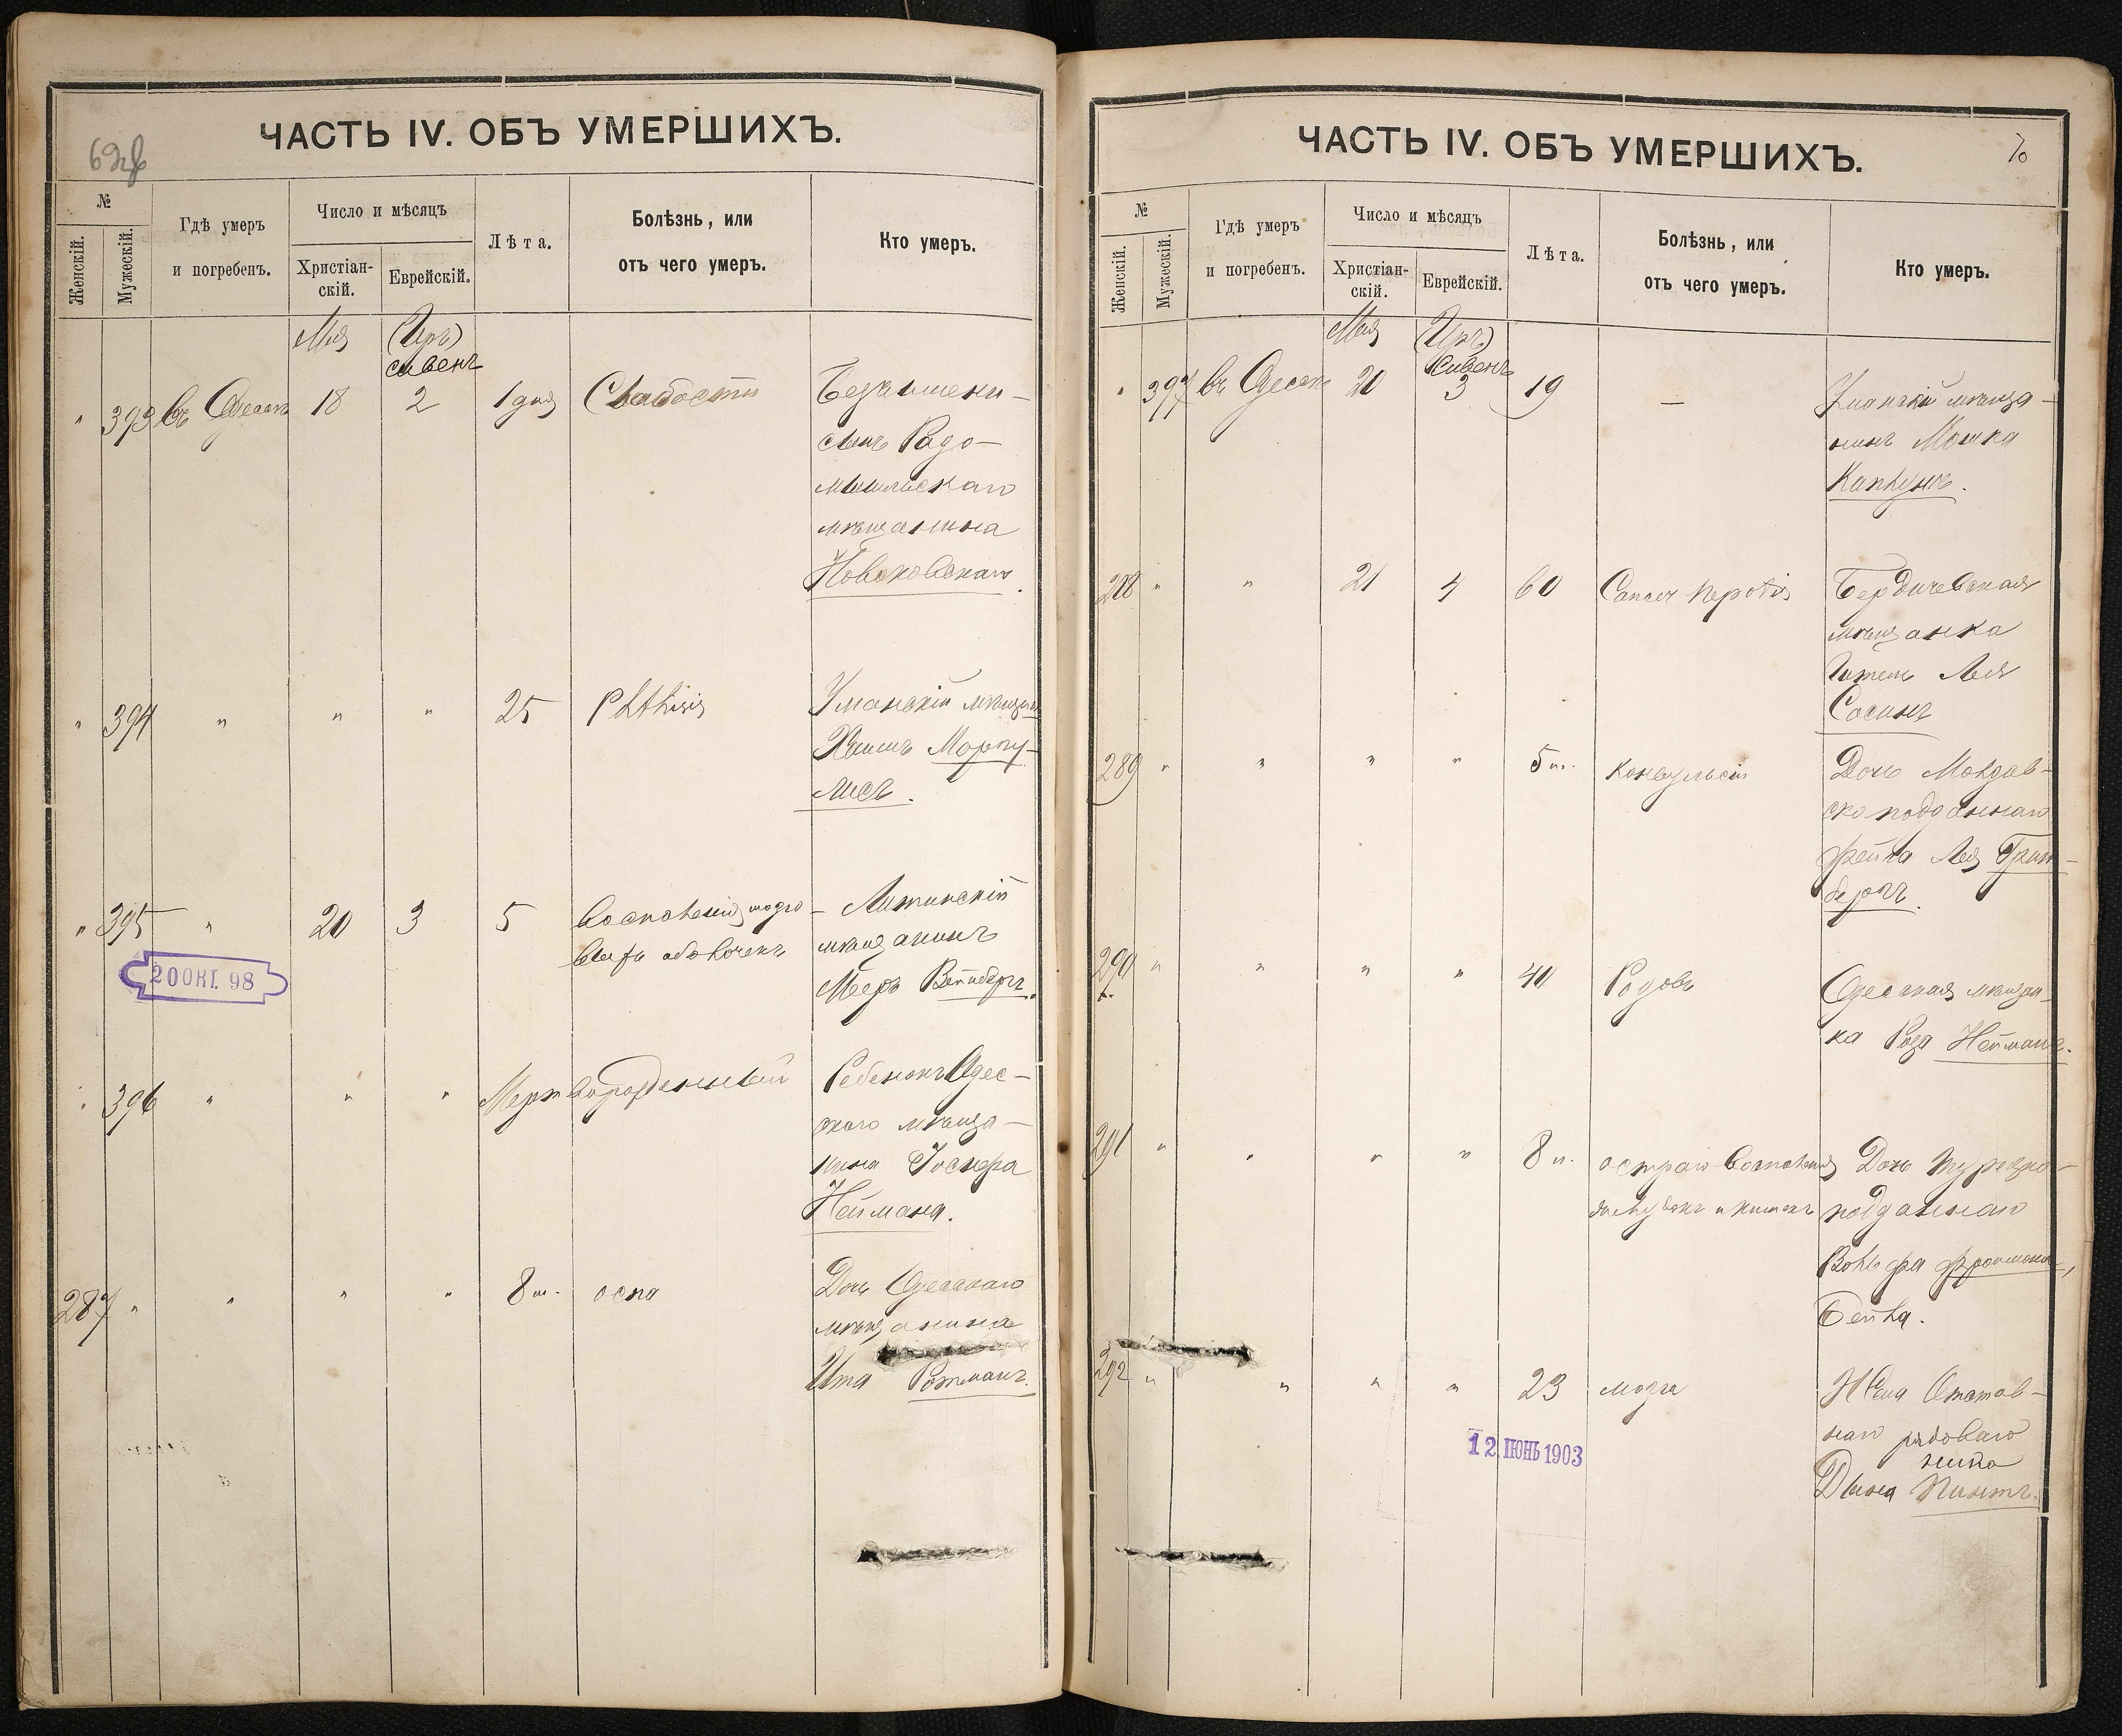 ЧАСТЬ IV. ОБЪ УМЕРШИХЪ.
№
Женскій.
Мужескій.
Гдѣ умеръ
и погребенъ.
Число и мѣсяцъ
Христіан-
скій.
Еврейскій.
Лѣта.
Болѣзнь, или
отъ чего умеръ.
Кто умеръ.
Мая
(Иръ)
сивенъ
" 393 въ Одессѣ 18 2 1 дня Слабости
Безъимен
сынъ Радо-
мысльскаго
мѣщанина
Новаковскаго.
" 394 " " " 25 Phthisis
Уманскій мѣщан
Хаимъ Моргу-
лисъ.
" 395 " 20 3 5 Воспаленія мозго-
выхъ оболочекъ
Литинскій
мѣщанинъ
Мееръ Вейнбергъ.
20 ОКТ. 98
" 396 " " " Мертворожденный
Ребенокъ Одес-
скаго мѣща-
нина
Неймана.
287 " " " " 8 м. оспа
Дочь Одесскаго
мѣщанина
Ита Ротманъ.
ЧАСТЬ IV. ОБЪ УМЕРШИХЪ.
70
№
Женскій.
Мужескій.
Гдѣ умеръ
и погребенъ.
Число и мѣсяцъ
Христіан-
скій.
Еврейскій.
Лѣта.
Болѣзнь, или
отъ чего умеръ.
Кто умеръ.
Мая
(Иръ)
Сивенъ
" 397 въ Одессѣ 20 3 19 —
мѣща-
нинъ Мошка
Каплунъ.
288 " " 21 4 60 Cancer hepatis
Бердичевская
мѣщанка
Лея
Сосинъ
289 " " " " 5 м. Конвульсіи
Дочь Молдав-
ско подданнаго
Фейга Лея Грин-
бергъ.
290 " " " " 40 Родовъ
Одесская мѣщан-
ка Роза Нейманъ.
291 " " " " 8 м. остраго воспаленія
желудокъ и кишекъ
Дочь турецко-
подданнаго
Вольфа Фроимана,
Бейла.
292 " " " " 23 мозга
Жена Отстав-
наго рядоваго
Двина Пинтъ.
12 ІЮНЬ 1903